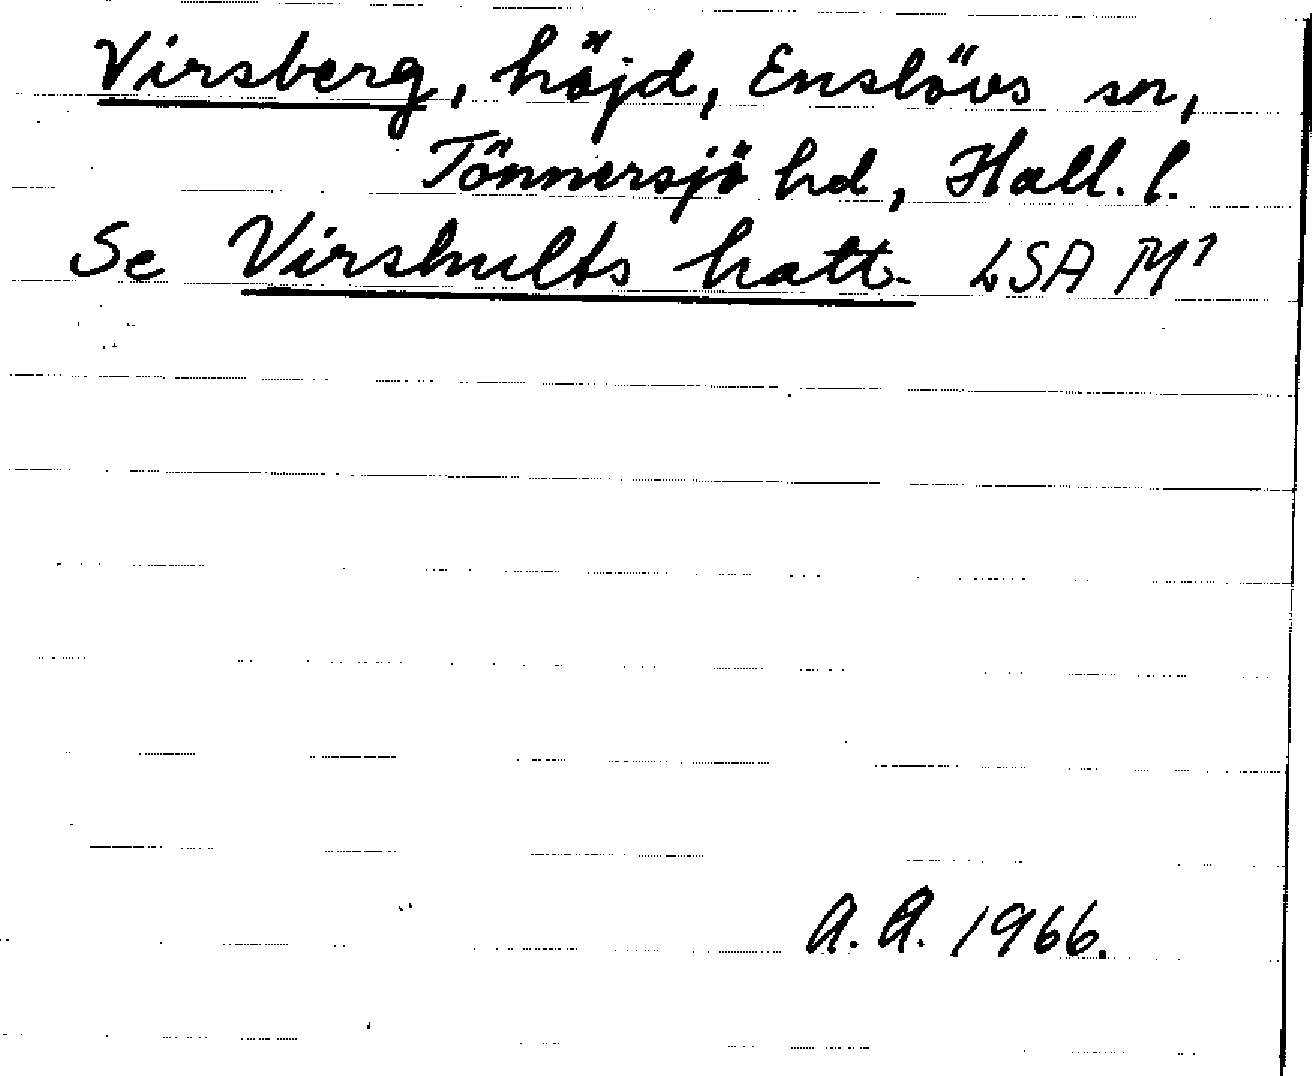 Virsberg, höjd, Enslövs sn,
Tönnersjö hd, Hall. l.
Se Virshults hatt. LSA M⁷
A. A. 1966.